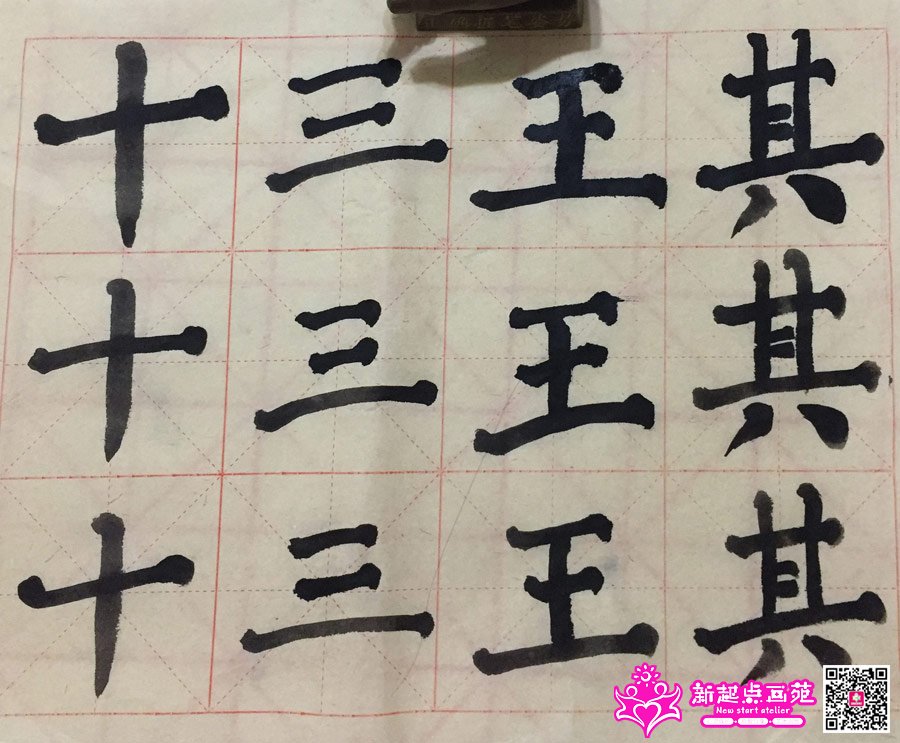 十三王其
十三王其
十三王其
新起点画苑
New start atelier